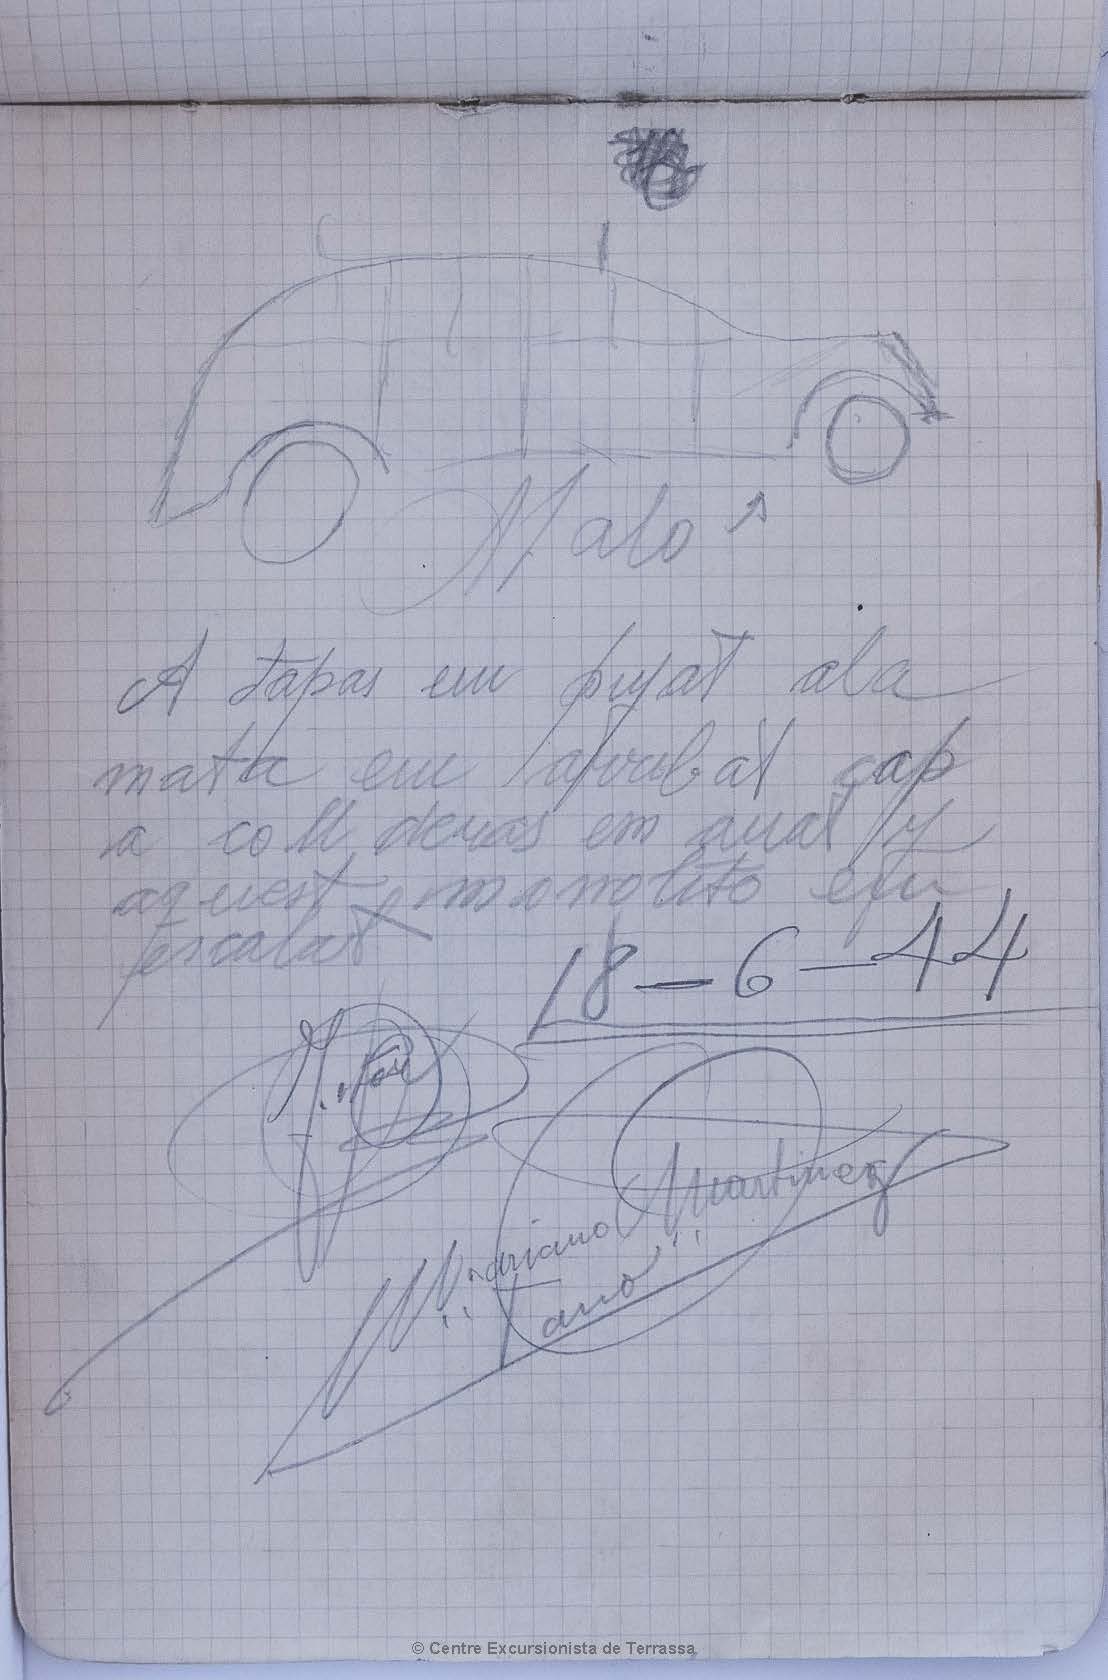 Malo
A tapas em pujat ala
mata em arrivat cap
a coll deras em anat y
aquest monolito em
escalat
18-6-44
Mariano Martinez
Tano
© Centre Excursionista de Terrassa